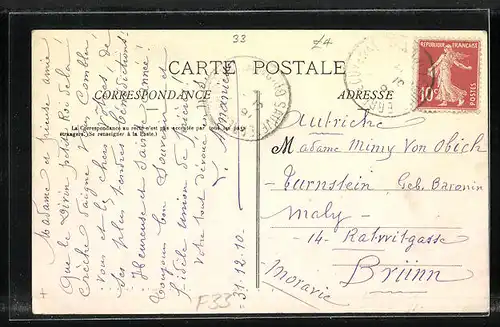 33
£4
CARTE POSTALE
CORRESPONDANCE
ADRESSE
La Correspondance au recto n'est pas acceptée par tous les pays
étrangers. (Se renseigner à la Poste)
RÉPUBLIQUE FRANÇAISE
10c
POSTES
Madame et pieuse amie!
Que le Divin petit Roi de la
Crèche daigne vous Combler
vous et les chers vôtres de
Ses plus tendres bénédictions!
Heureuse et Sainte année!
Toujours bon Souvenir et
fidèle union de prières
Votre tout dévoué
31.12.10.
Autriche
Madame Mimy Von Obich
Turnstein, Geb. Baronin
Maly
14 - Ratwitgasse
Brünn
Moravie
F33
+